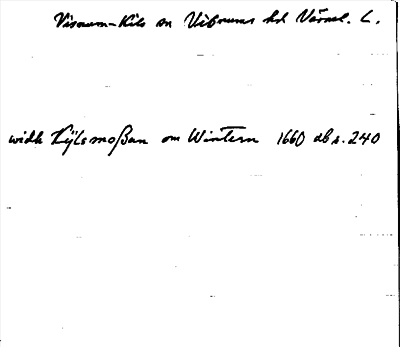 Visnum-Kils sn Visnums hd Värml. L.
widh Kijlsmoßan om Wintern 1660 db s. 240